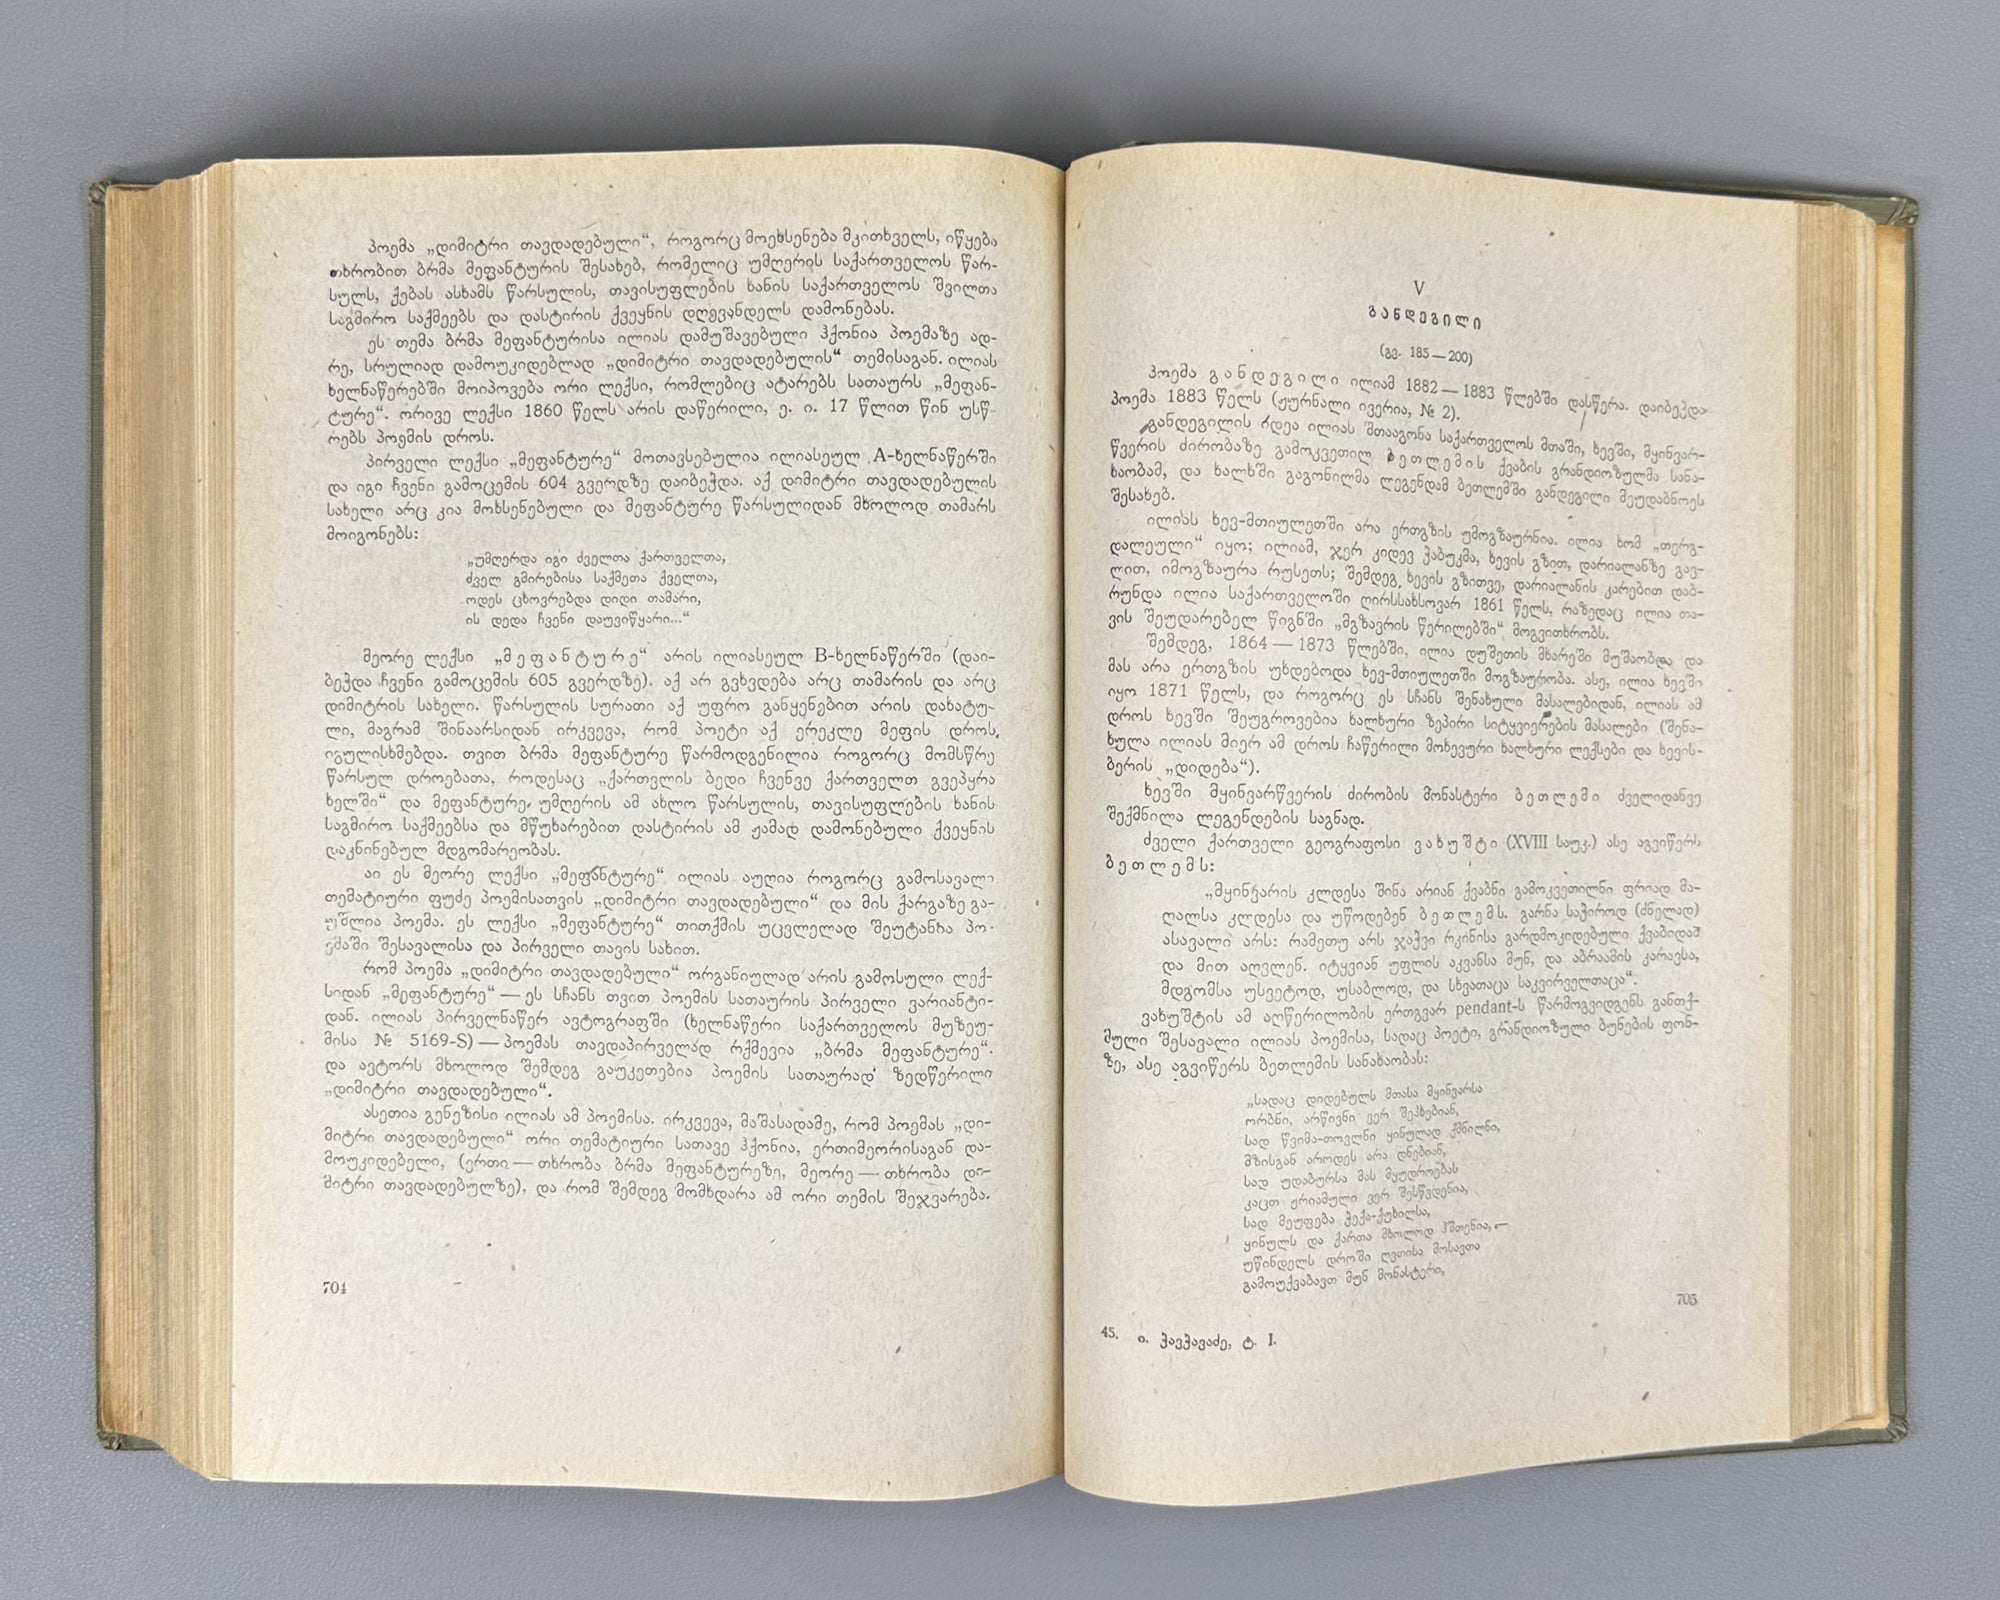 პოემა „დიმიტრი თავდადებული“, როგორც მოეხსენება მკითხველს, იწყება
თხრობით ბრმა მეფანტურის შესახებ, რომელიც უმღერის საქართველოს წარ-
სულს, ქებას ასხამს წარსულის, თავისუფლების ხანის საქართველოს შვილთა
საგმირო საქმეებს და დასტირის ქვეყნის დღევანდელს დამონებას.
ეს თემა ბრმა მეფანტურისა ილიას დამუშავებული ჰქონია პოემაზე ად-
რე, სრულიად დამოუკიდებლად „დიმიტრი თავდადებულის“ თემისაგან. ილიას
ხელნაწერებში მოიპოვება ორი ლექსი, რომლებიც ატარებს სათაურს „მეფან-
ტურე“. ორივე ლექსი 1860 წელს არის დაწერილი, ე. ი. 17 წლით წინ უსწ-
რებს პოემის დროს.
პირველი ლექსი „მეფანტურე“ მოთავსებულია ილიასეულ A-ხელნაწერში
და იგი ჩვენი გამოცემის 604 გვერდზე დაიბეჭდა. აქ დიმიტრი თავდადებულის
სახელი არც კია მოხსენებული და მეფანტურე წარსულიდან მხოლოდ თამარს
მოიგონებს:
„უმღერდა იგი ძველთა ქართველთა,
ძველ გმირებისა საქმეთა ქველთა,
ოდეს ცხოვრებდა დიდი თამარი,
ის დედა ჩვენი დაუვიწყარი...“
მეორე ლექსი „მეფანტურე“ არის ილიასეულ B-ხელნაწერში (დაი-
ბეჭდა ჩვენი გამოცემის 605 გვერდზე). აქ არ გვხვდება არც თამარის და არც
დიმიტრის სახელი. წარსულის სურათი აქ უფრო განყენებით არის დახატუ-
ლი, მაგრამ შინაარსიდან ირკვევა, რომ პოეტი აქ ერეკლე მეფის დროს
იგულისხმებდა. თვით ბრმა მეფანტურე წარმოდგენილია როგორც მომსწრე
წარსულ დროებათა, როდესაც „ქართვლის ბედი ჩვენვე ქართველთ გვეპყრა
ხელში“ და მეფანტურე უმღერის ამ ახლო წარსულის, თავისუფლების ხანის
საგმირო საქმეებსა და მწუხარებით დასტირის ამ ჟამად დამონებული ქვეყნის
დაკნინებულ მდგომარეობას.
აი ეს მეორე ლექსი „მეფანტურე“ ილიას აუღია როგორც გამოსავალი
თემატიური ფუძე პოემისათვის „დიმიტრი თავდადებული“ და მის ქარგაზე გა-
უშლია პოემა. ეს ლექსი „მეფანტურე“ თითქმის უცვლელად შეუტანია პო-
ემაში შესავალისა და პირველი თავის სახით.
რომ პოემა „დიმიტრი თავდადებული“ ორგანიულად არის გამოსული ლექ-
სიდან „მეფანტურე“ — ეს სჩანს თვით პოემის სათაურის პირველი ვარიანტი-
დან. ილიას პირველნაწერ ავტოგრაფში (ხელნაწერი საქართველოს მუზეუ-
მისა № 5169-S) — პოემას თავდაპირველად რქმევია „ბრმა მეფანტურე“.
და ავტორს მხოლოდ შემდეგ გაუკეთებია პოემის სათაურად ზედწერილი
„დიმიტრი თავდადებული“.
ასეთია გენეზისი ილიას ამ პოემისა. ირკვევა, მაშასადამე, რომ პოემას „დი-
მიტრი თავდადებული“ ორი თემატიური სათავე ჰქონია, ერთიმეორისაგან და-
მოუკიდებელი, (ერთი — თხრობა ბრმა მეფანტურეზე, მეორე — თხრობა დი-
მიტრი თავდადებულზე), და რომ შემდეგ მომხდარა ამ ორი თემის შეჯვარება.
704
V
განდეგილი
(გვ. 185—200)
პოემა განდეგილი ილიამ 1882—1883 წლებში დასწერა. დაიბეჭდა
პოემა 1883 წელს (ჟურნალი ივერია, № 2).
განდეგილის იდეა ილიას შთააგონა საქართველოს მთაში, ხევში, მყინვარ-
წვერის ძირობაზე გამოკვეთილ ბეთლემის ქვაბის გრანდიოზულმა სანა-
ხაობამ, და ხალხში გაგონილმა ლეგენდამ ბეთლემში განდეგილი მეუდაბნოეს
შესახებ.
ილიას ხევ-მთიულეთში არა ერთგზის უმოგზაურნია. ილია ხომ „თერგ-
დალეული“ იყო; ილიამ, ჯერ კიდევ ჭაბუკმა, ხევის გზით, დარიალანზე გავ-
ლით, იმოგზაურა რუსეთს; შემდეგ ხევის გზითვე, დარიალანის კარებით დაბ-
რუნდა ილია საქართველოში ღირსსახსოვარ 1861 წელს, რაზედაც ილია თა-
ვის შეუდარებელ წიგნში „მგზავრის წერილებში“ მოგვითხრობს.
შემდეგ, 1864—1873 წლებში, ილია დუშეთის მხარეში მუშაობდა და
მას არა ერთგზის უხდებოდა ხევ-მთიულეთში მოგზაურობა. ასე, ილია ხევში
იყო 1871 წელს, და როგორც ეს სჩანს შენახული მასალებიდან, ილიას ამ
დროს ხევში შეუგროვებია ხალხური ზეპირი სიტყვიერების მასალები (შენა-
ხულა ილიას მიერ ამ დროს ჩაწერილი მოხევური ხალხური ლექსები და ხევის-
ბერის „დიდება“).
ხევში მყინვარწვერის ძირობის მონასტერი ბეთლემი ძველიდანვე
შექმნილა ლეგენდების საგნად.
ძველი ქართველი გეოგრაფოსი ვახუშტი (XVIII საუკ.) ასე აგვიწერს
ბეთლემს:
„მყინვარის კლდესა შინა არიან ქვაბნი გამოკვეთილნი ფრიად მა-
ღალსა კლდესა და უწოდებენ ბეთლემს. გარნა საჭიროდ (ძნელად)
ასავალი არს: რამეთუ არს ჯაჭვი რკინისა გარდმოკიდებული ქვაბიდამ
და მით აღვლენ. იტყვიან უფლის აკვანსა მუნ, და აბრაამის კარავსა,
მდგომსა უსვეტოდ, უსაბლოდ, და სხვათაცა საკვირველთაცა“.
ვახუშტის ამ აღწერილობის ერთგვარ pendant-ს წარმოგვიდგენს განთქ-
მული შესავალი ილიას პოემისა, სადაც პოეტი, გრანდიოზული ბუნების ფონ-
ზე, ასე აგვიწერს ბეთლემის სანახაობას:
„სადაც დიდებულს მთასა მყინვარსა
ორბნი, არწივნი ვერ შეჰხებიან,
სად წვიმა-თოვლნი ყინულად ქმნილნი,
მზისგან აროდეს არა დნებიან,
სად უდაბურსა მას მყუდროებას
კაცთ ჟრიამული ვერ შესწვდენია,
სად მეუფება ჭექა-ქუხილსა,
ყინულს და ქართა მხოლოდ ჰშთენია, —
უწინდელს დროში ღვთისა მოსავთა
გამოუქვაბავთ მუნ მონასტერი,
705
45. ი. ჭავჭავაძე, ტ. I.